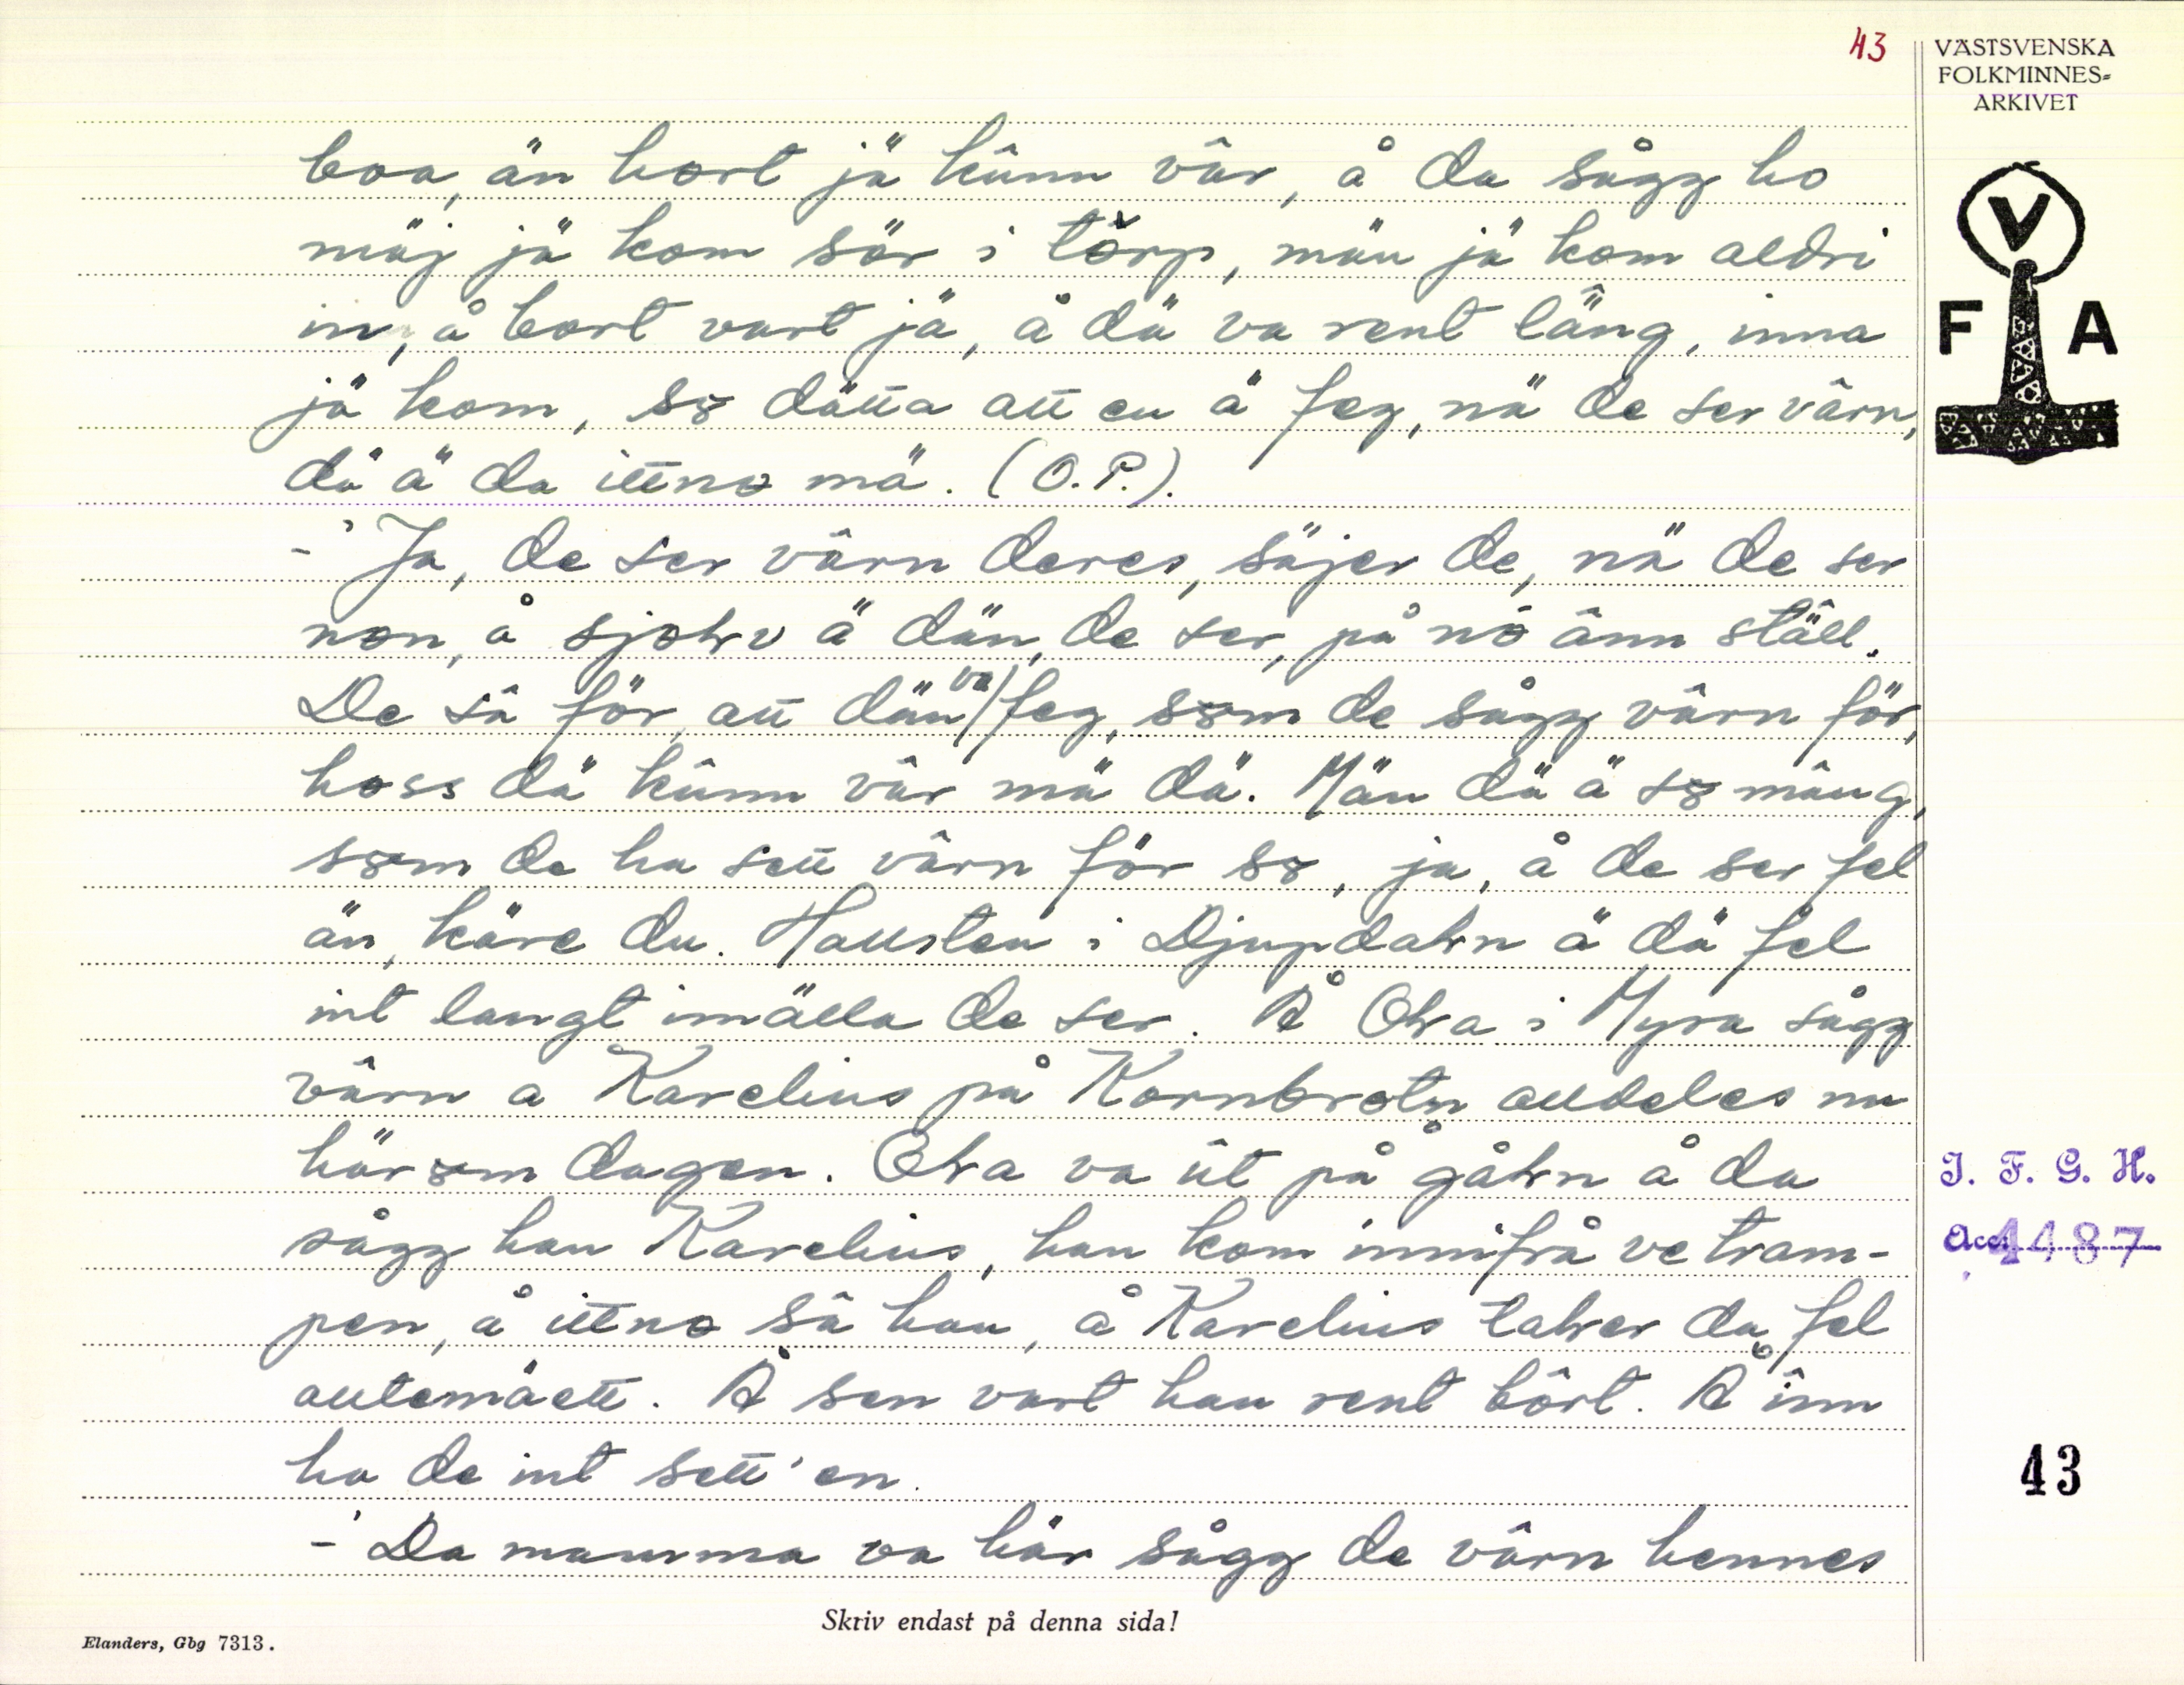 43
VÄSTSVENSKA
FOLKMINNES=
ARKIVET
boa, än hort jä kûnn vâr, å da sågg ho
mäj jä kom sör i tôrp, män jä kom aldri
in, å bort vart jä, å dä va rent läng, inna
jä kom, so dätta att en ä feg, nä de ser vârn,
dä ä da ittno mä. (O.P.).
-' Ja, de ser vârn deres, säjer de, nä de ser
non, å sjohv ä dän, de ser, på nô änn ställ.
De sâ för, att dän va/ feg, som de sågg vârn för,
hoss dä kûnn vâr mä dä. Män dä ä so mâng,
som de ha sett vârn för so, ja, å de ser fel
än, käre du. Hallsten i Djupdahn ä dä fel
int langt imälla de ser. Å Oha i Myra sågg
vârn a Karelius på Kornbrotn alldeles nu
härom dagen. Oha va ût på gåhn å da
sågg han Karelius, han kom innifrå ve tram-
pen, å ittno sâ han, å Karelius taher da fel
autemäett. Å sen vart han rent bôrt. Å înn
ha de int sett'en.
-' Da mamma va här sågg de vârn hennes
F V A
I. F. G. H.
Acc. 4487
43
Skriv endast på denna sida!
Elanders, Gbg 7313.